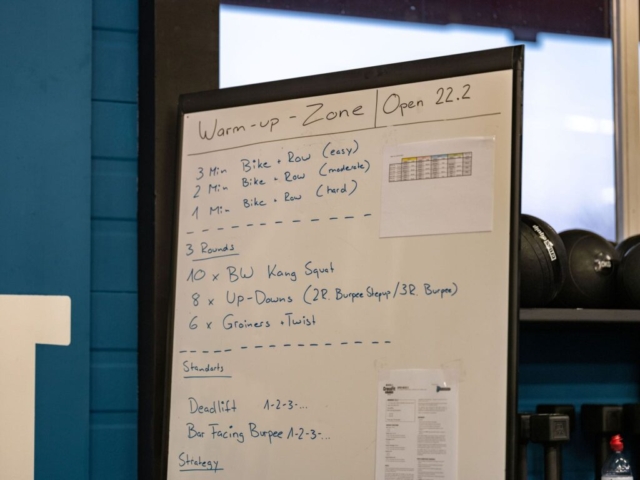 Warm-up-Zone | Open 22.2
3 Min Bike + Row (easy)
2 Min Bike + Row (moderate)
1 Min Bike + Row (hard)
3 Rounds
10 x BW Kang Squat
8 x Up-Downs (2R. Burpee Stepup/3R. Burpee)
6 x Groiners + Twist
Standarts
Deadlift 1-2-3-...
Bar Facing Burpee 1-2-3-...
Strategy